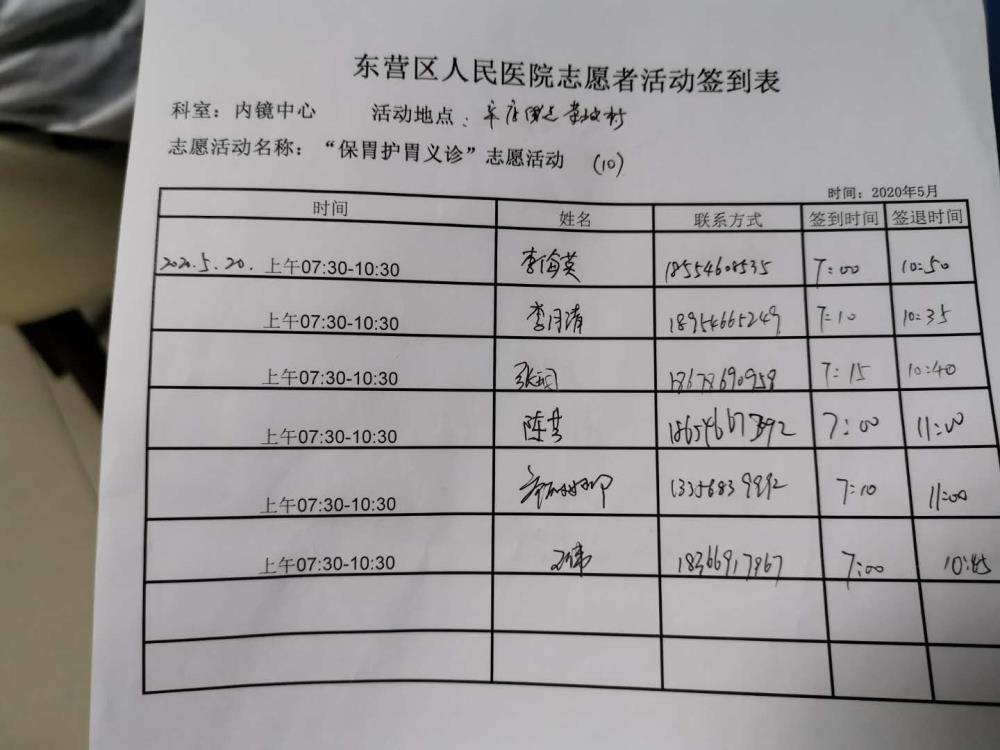 东营区人民医院志愿者活动签到表
科室：内镜中心 活动地点：
志愿活动名称：“保胃护胃义诊”志愿活动 (10)
时间：2020年5月
时间 姓名 联系方式 签到时间 签退时间
2020.5.20. 上午07:30-10:30 李俊英 18554608535 7:00 10:50
上午07:30-10:30 李月清 18954665249 7:10 10:35
上午07:30-10:30 18678690958 7:15 10:40
上午07:30-10:30 陈芸 7:00 11:00
上午07:30-10:30 13356839992 7:10 11:00
上午07:30-10:30 王伟 18366917967 7:00 10:45